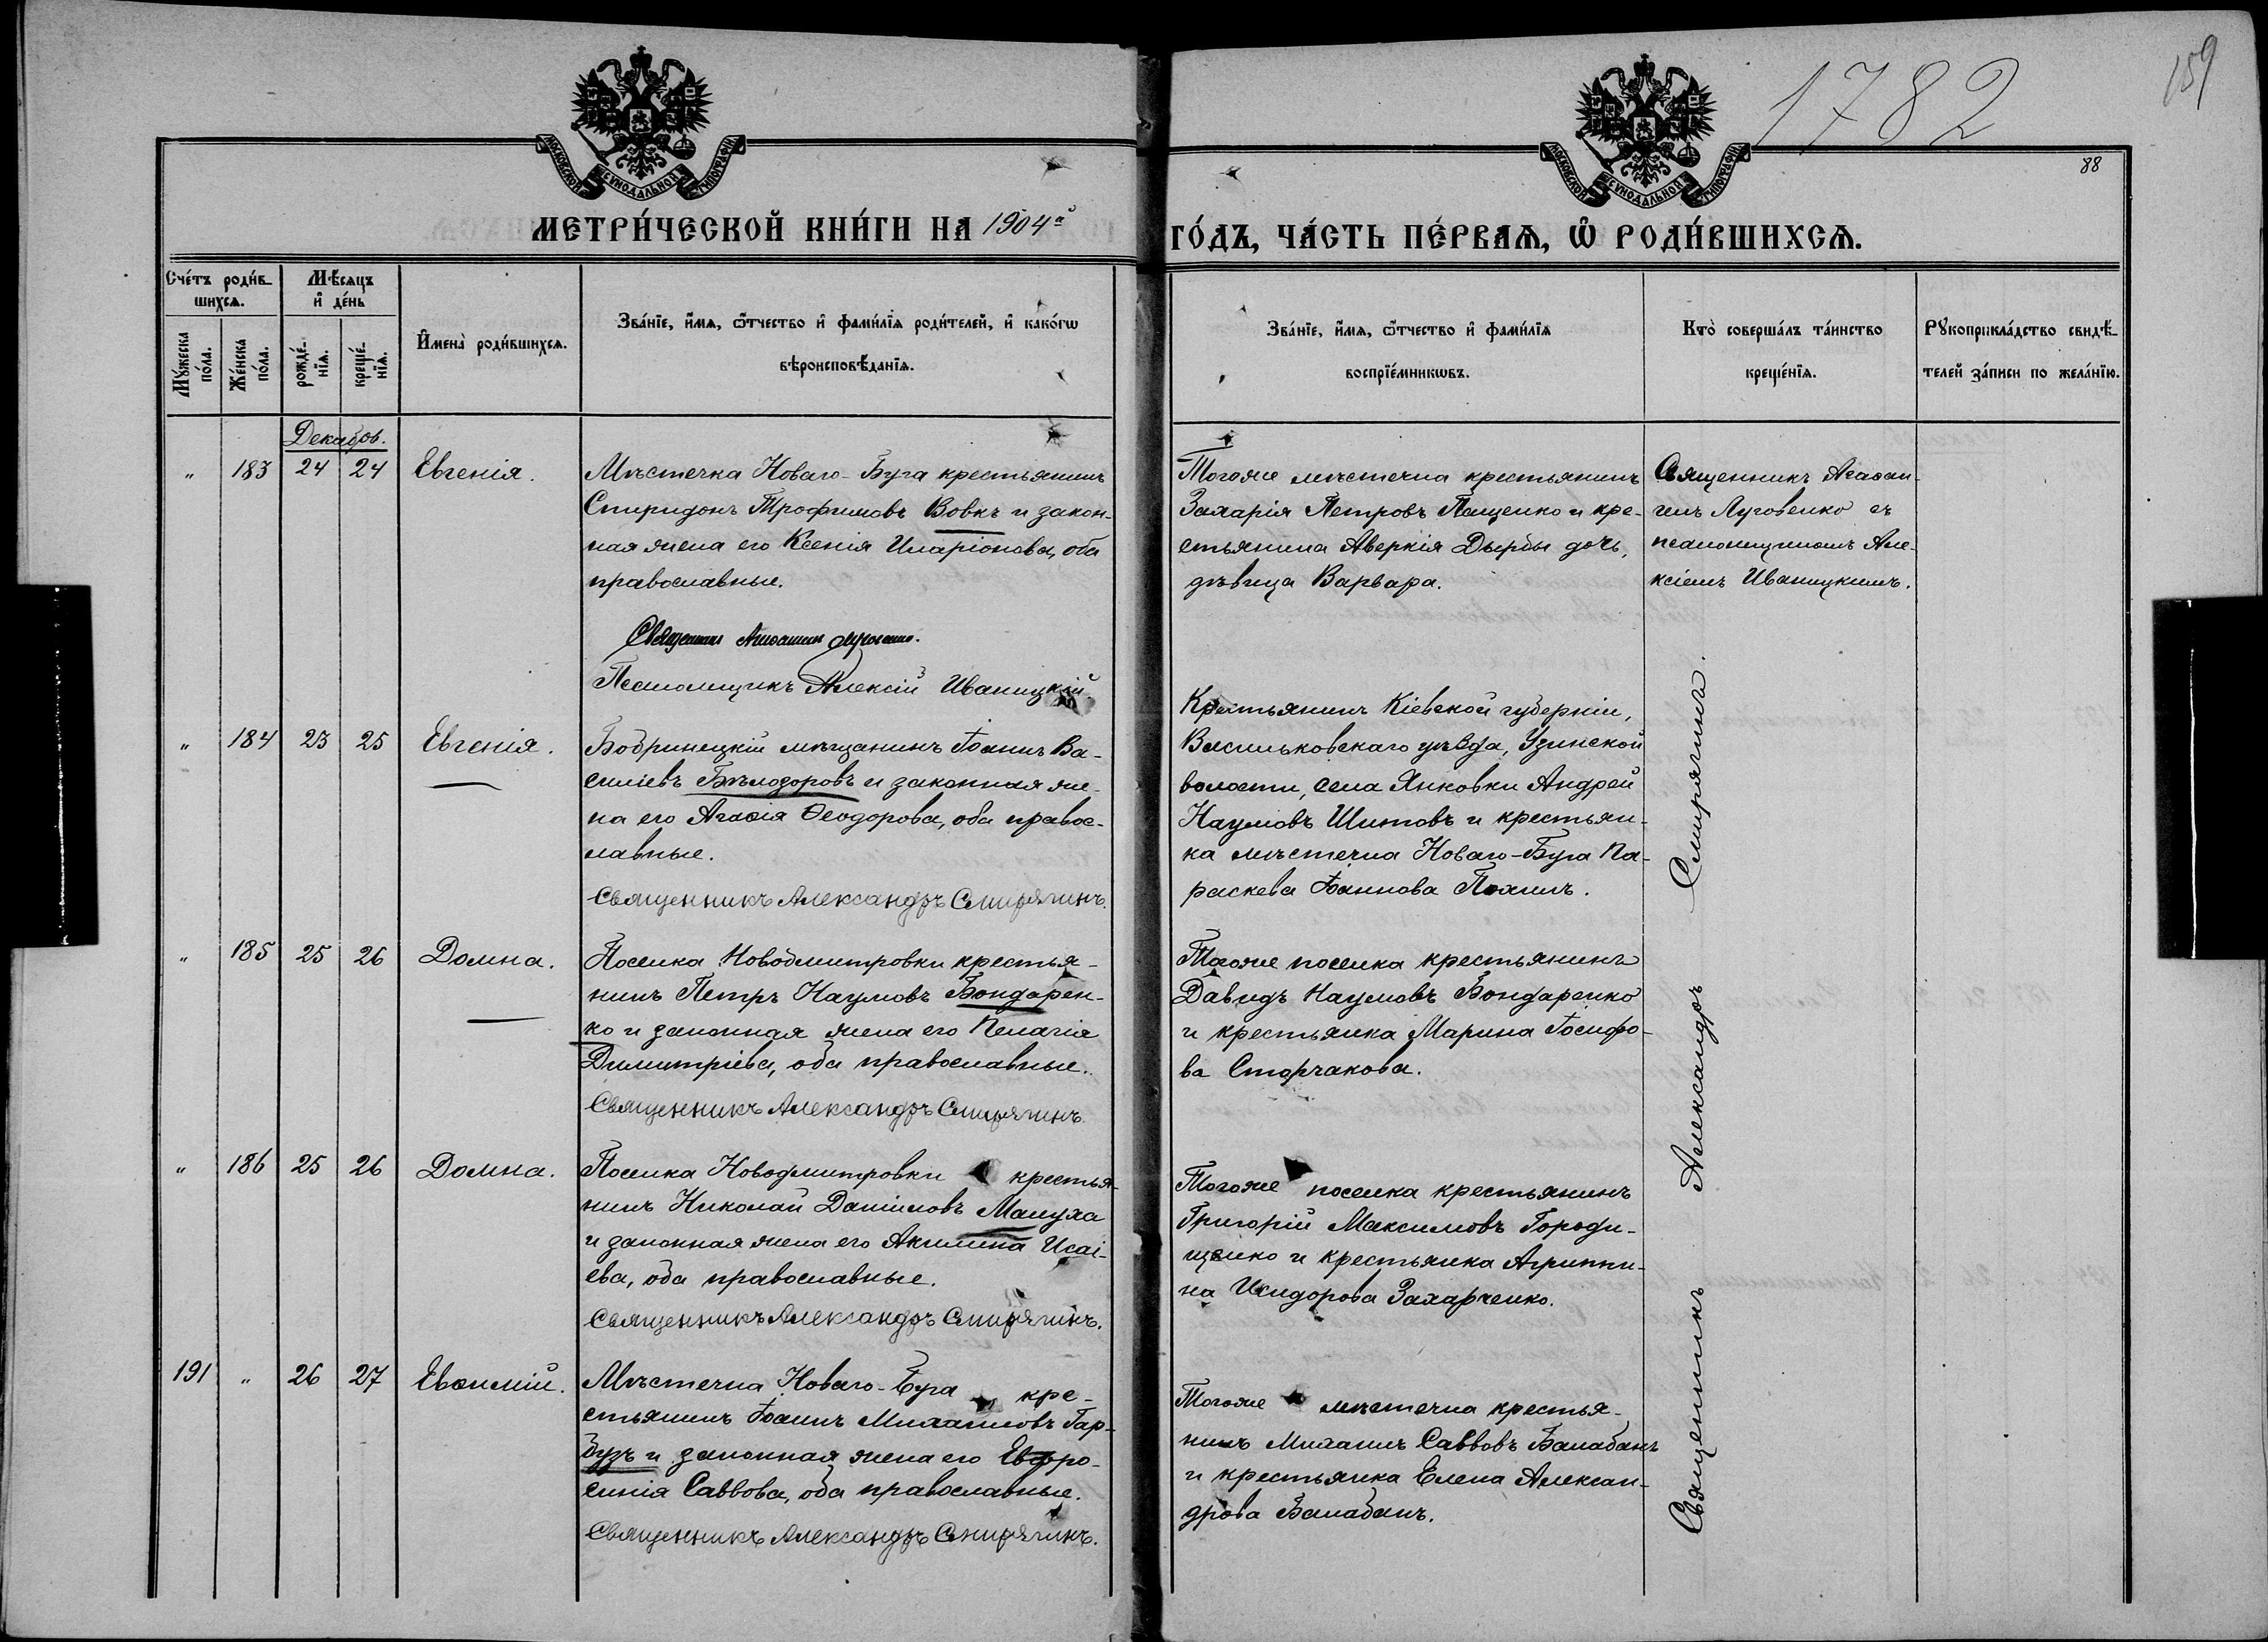 1782
159
88
МОСКОВСКОЙ СѴНОДАЛЬНОЙ ТИПОГРАФІИ
МОСКОВСКОЙ СѴНОДАЛЬНОЙ ТИПОГРАФІИ
МЕТРИ́ЧЕСКОЙ КНИ́ГИ НА 1904й
ГО́ДЪ, ЧА́СТЬ ПЕ́РВАѦ, Ѡ РОДИ́ВШИХСѦ.
Сче́тъ роди́в-
шихсѧ.
Мꙋ́жеска
по́ла.
Же́нска
по́ла.
Мѣ́сѧцъ
и҆ де́нь
рожде́-
нїѧ.
креще́-
нїѧ.
И҆мена̀ роди́вшихсѧ.
Зва́нїе, и҆́мѧ, ѻ҆́тчество и҆ фами́лїѧ роди́телей, и҆ како́гѡ
вѣроисповѣ́данїѧ.
Зва́нїе, и҆́мѧ, ѻ҆́тчество и҆ фами́лїѧ
воспрїе́мникѡвъ.
Кто̀ соверша́лъ та́инство
креще́нїѧ.
Рꙋкоприкла́дство свидѣ́-
телей за́писи по жела́нїю.
Декабрь.
„ 183 24 24 Евгенія.
Мѣстечка Новаго-Буга крестьянинъ
Спиридонъ Трофимовъ Вовкъ и закон-
ная жена его Ксенія Иларіонова, оба
православные.
Священникъ Агаѳангелъ Луговенко.
Псаломщикъ Алексій Иваницкій.
Тогоже мѣстечка крестьянинъ
Захарія Петровъ Пащенко и кре-
стьянина Аверкія Дырбы дочь,
дѣвица Варвара.
Священникъ Агаѳан-
гелъ Луговенко съ
псаломщикомъ Але-
ксіемъ Иваницкимъ.
„ 184 23 25 Евгенія.
Бобринецкій мѣщанинъ Іоаннъ Ва-
силіевъ Бѣлодоровъ и законная же-
на его Агаѳія Ѳеодорова, оба правос-
лавные.
Священникъ Александръ Смирягинъ.
Крестьянинъ Кіевской губерніи,
Васильковскаго уѣзда, Узинской
волости, села Янковки Андрей
Наумовъ Шитовъ и крестьян-
ка мѣстечка Новаго-Буга Па-
раскева Іоаннова
„ 185 25 26 Домна.
Поселка Новодмитровки крестья-
нинъ Петръ Наумовъ Бондарен-
ко и законная жена его Пелагія
Димитріева, оба православные.
Священникъ Александръ Смирягинъ.
Тогоже поселка крестьянинъ
Давидъ Наумовъ Бондаренко
и крестьянка Марина Іосифо-
ва Сторчакова.
„ 186 25 26 Домна.
Поселка Новодмитровки крестья-
нинъ Николай Даніиловъ Малуха
и законная жена его Акилина Исаі-
ева, оба православные.
Священникъ Александръ Смирягинъ.
Тогоже поселка крестьянинъ
Григорій Максимовъ Городи-
щенко и крестьянка Агриппи-
на Исидорова Захарченко.
191 „ 26 27 Евѳимій.
Мѣстечка Новаго-Буга кре-
стьянинъ Іоаннъ Михаиловъ Гар-
бузъ и законная жена его Евфро-
синія Саввова, оба православные.
Священникъ Александръ Смирягинъ.
Тогоже мѣстечка крестья-
нинъ Михаилъ Саввовъ Балабанъ
и крестьянка Елена Алексан-
дрова Балабанъ.
Священникъ Александръ Смирягинъ.